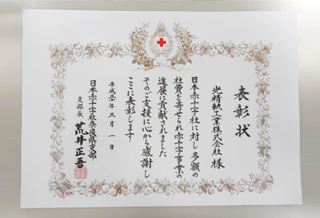 表彰状
光精紙工業株式会社 様
日本赤十字社に対し多額の
社費を寄せられ赤十字事業の
進展に貢献されました
そのご支援に心から感謝し
ここに表彰します
平成三十年三月一日
日本赤十字社奈良県支部
支部長 荒井正吾